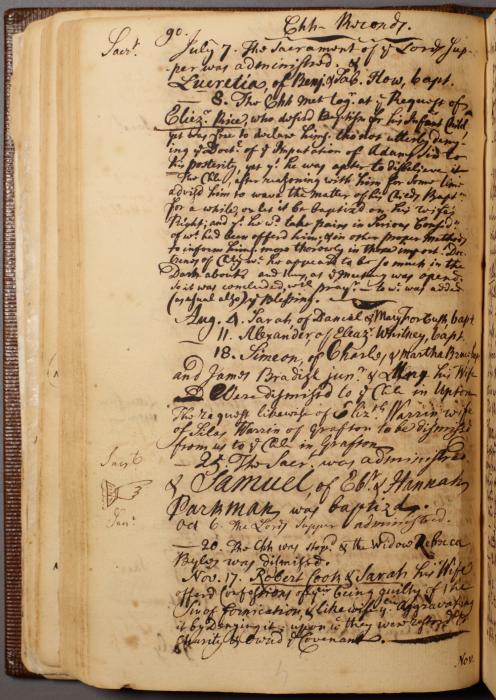 90. Chh Records.
Sacrt. July 7. The Sacrament of ye Lords Sup-
per was administred. &
Lucretia, of Benj. & Tab. How, bapt.
8. The Chh met togr. at ye Request of
Eliezr. Rice, who desird Baptism for his Infant Child
yet was free to declare hims. tho not utterly deny
ing ye Doctr. of ye Imputation of Adams sin to
his posterity, yet yt. he was apter to disbelieve it
The Chh, after reasoning with him for some time
advisd him to wave the matter of his Childs Baptm
for a while, or let it be baptizd on his wifes
Right; and yt. he wd. take pains in serious Considn.
of wt. had been offerd him, & in other proper methods
to inform hims. more thoroly in these import. Doc-
trines of Christy. he appeard to be so much in the
Dark about and as ye meeting was open'd
so it was concluded, with prayr. to wc. was added
(as usual also) ye blessing.
Aug. 4. Sarah, of Daniel & Mary Forbush bapt
11. Alexander of Eleazr. Whitney, bapt.
18. Simeon, of Charles, & Martha
and James Bradish junr. & his Wife
Were dismissd to ye Chh in Upton
The request likewise of Elizth. Warrin wife
of Silas Warrin of Grafton to be dismissd
from us to ye Chh in Grafton
Sacrt. 25. The Sacrt. was administred
& Samuel, of Ebr. & Hannah
Parkman, was baptizd.
Oct 6. The Lords Supper administred.
20. The Chh was stopd. & the Widow Rebecca
Byles was dismissd.
Nov. 17. Robert Cook & Sarah his Wife
offerd Confessions of yir being guilty of the
sin of Fornication, & likewise yir Aggravating
it by Denying it: upon wc they were restord to
Charity & ownd ye Covenant.
Nov.